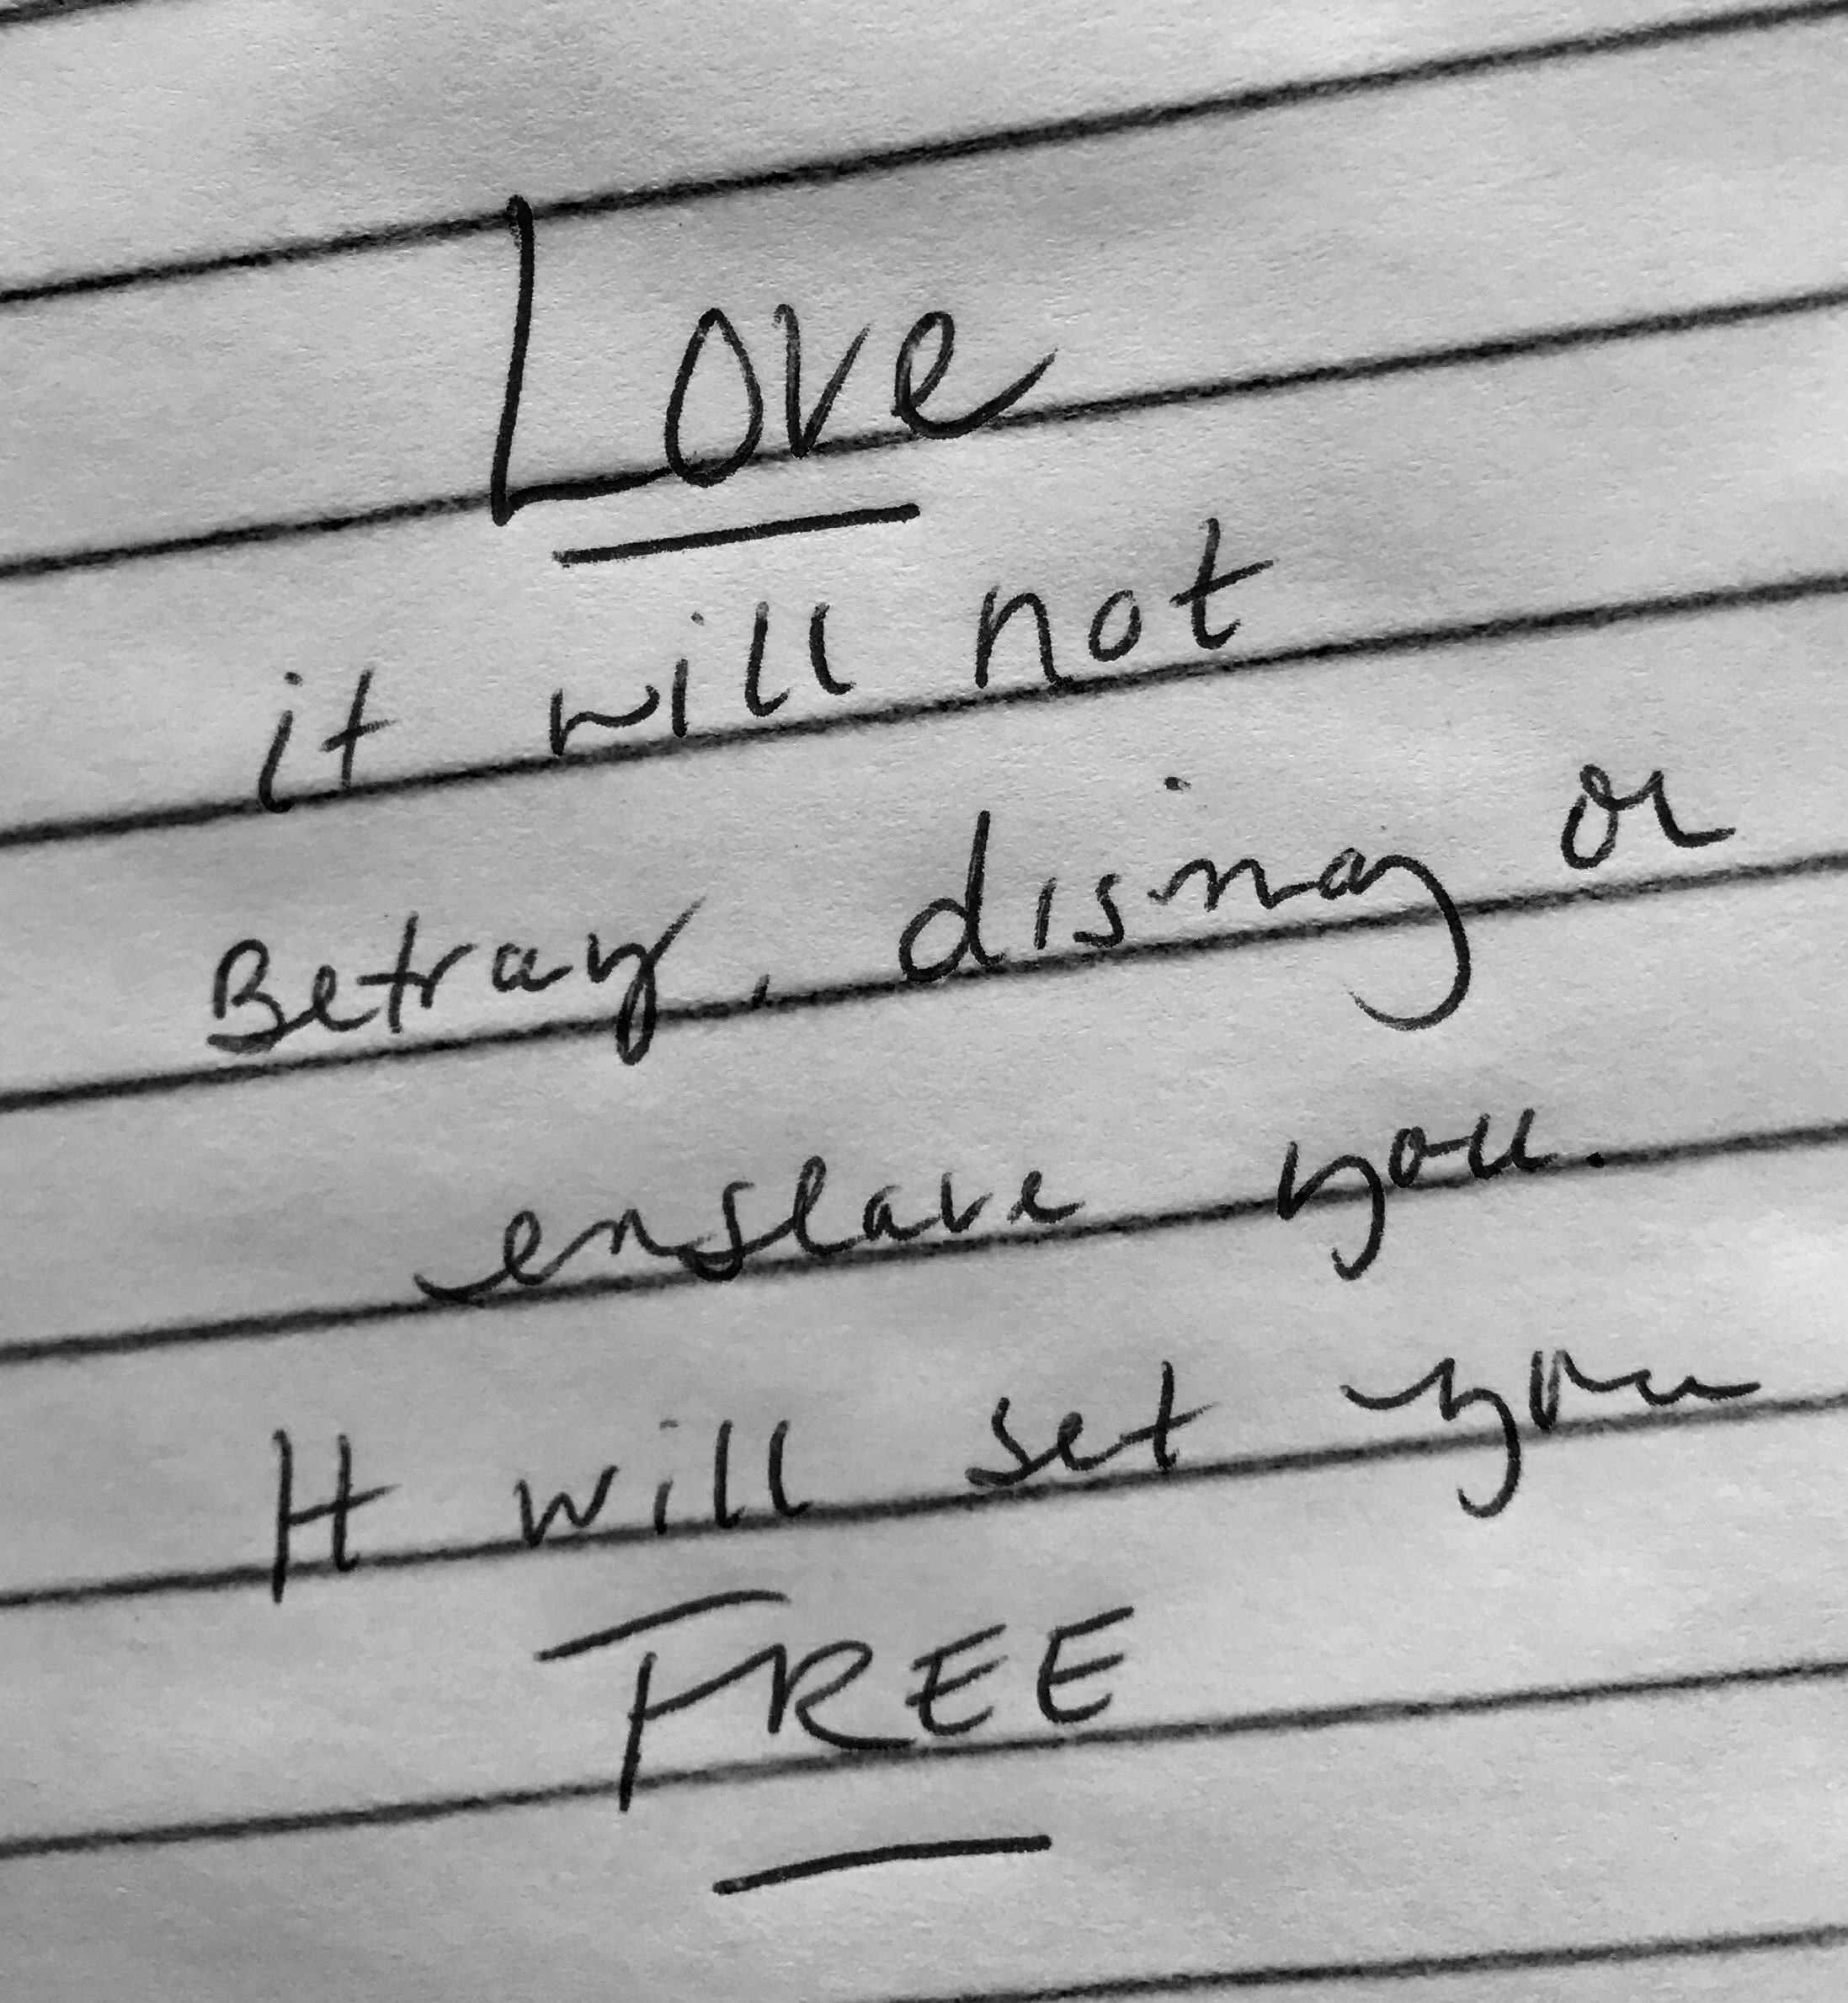 Love
it will not
Betray, dismay or
enslave you.
It will set you
FREE